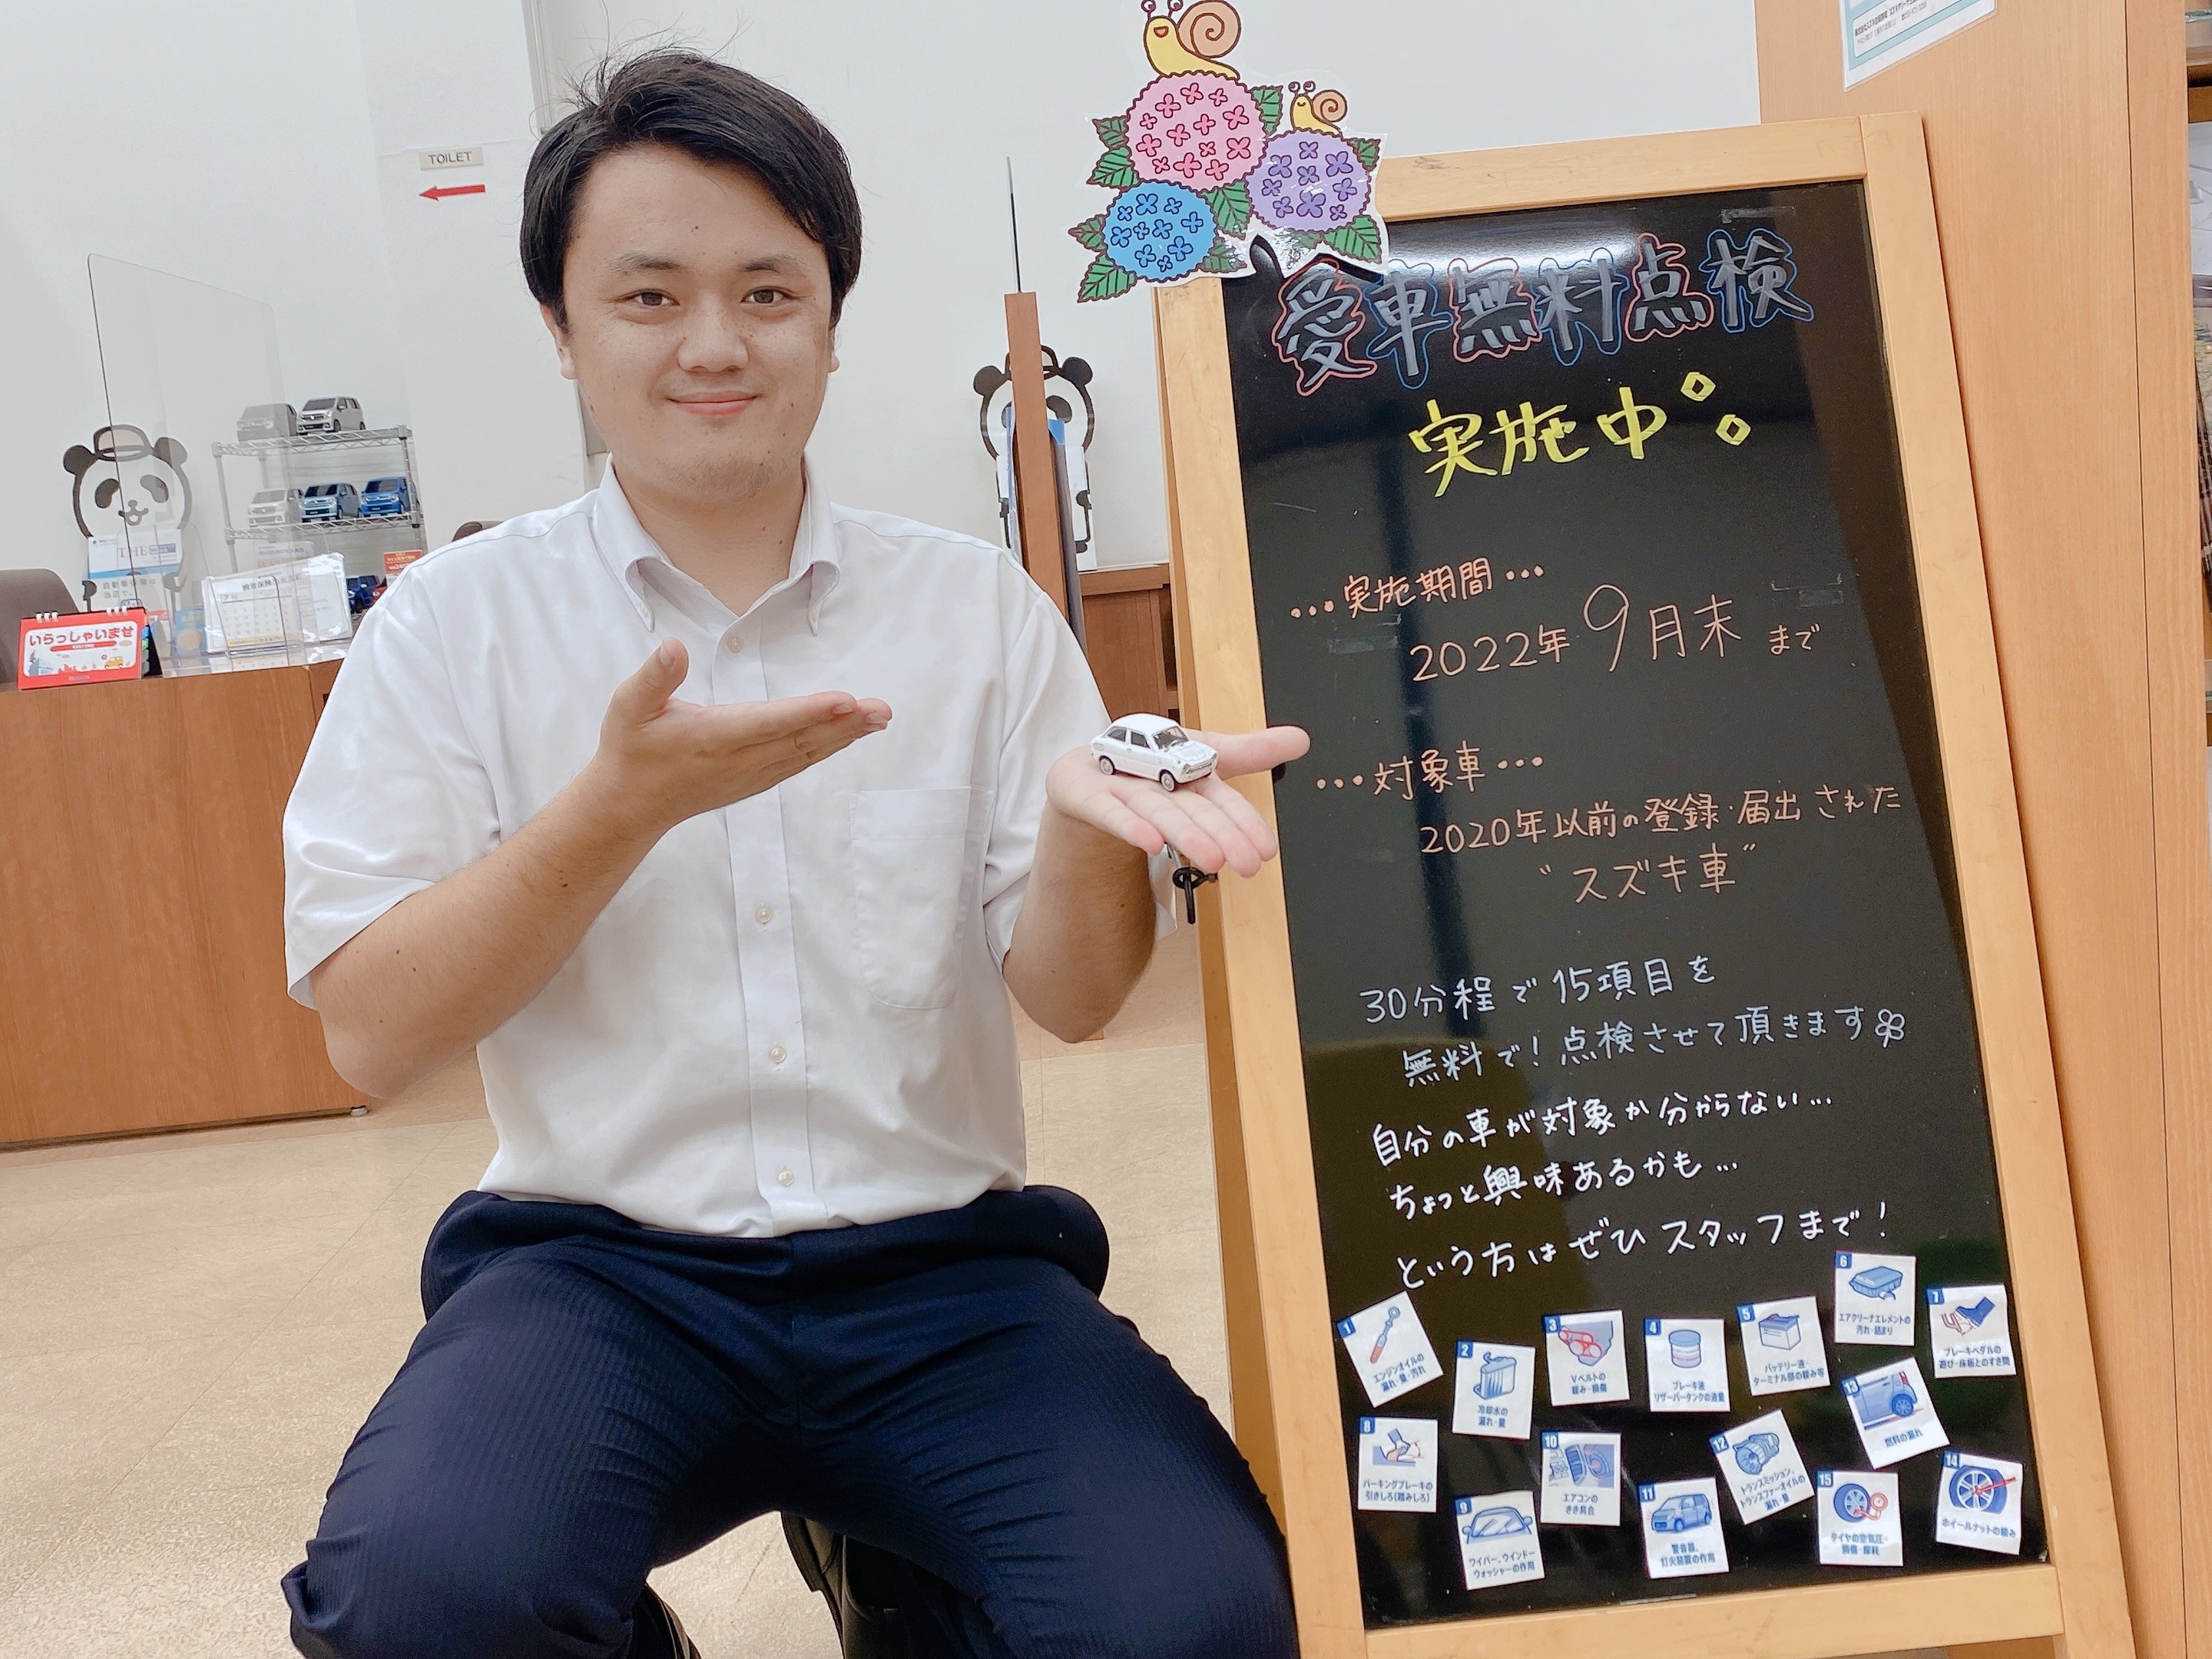 TOILET
THE
いらっしゃいませ
愛車無料点検
実施中
…実施期間…
2022年 9月末 まで
…対象車…
2020年以前の登録・届出された
"スズキ車"
30分程で15項目を
無料で!点検させて頂きます
自分の車が対象か分からない…
ちょっと興味あるかも…
という方はぜひスタッフまで!
1
エンジンオイルの
漏れ・量・汚れ
2
冷却水の
漏れ・量
3
Vベルトの
緩み・損傷
4
ブレーキ液
リザーバータンクの液量
5
バッテリー液・
ターミナル部の緩み等
6
エアクリーナエレメントの
汚れ・詰まり
7
ブレーキペダルの
遊び・床板とのすき間
8
パーキングブレーキの
引きしろ(踏みしろ)
9
ワイパー、ウインドー
ウォッシャーの作用
10
エアコンの
きき具合
11
警音器、
灯火装置の作用
12
トランスミッション、
トランスファーオイルの
漏れ・量
13
燃料の漏れ
14
ホイールナットの緩み
15
タイヤの空気圧・
損傷・摩耗